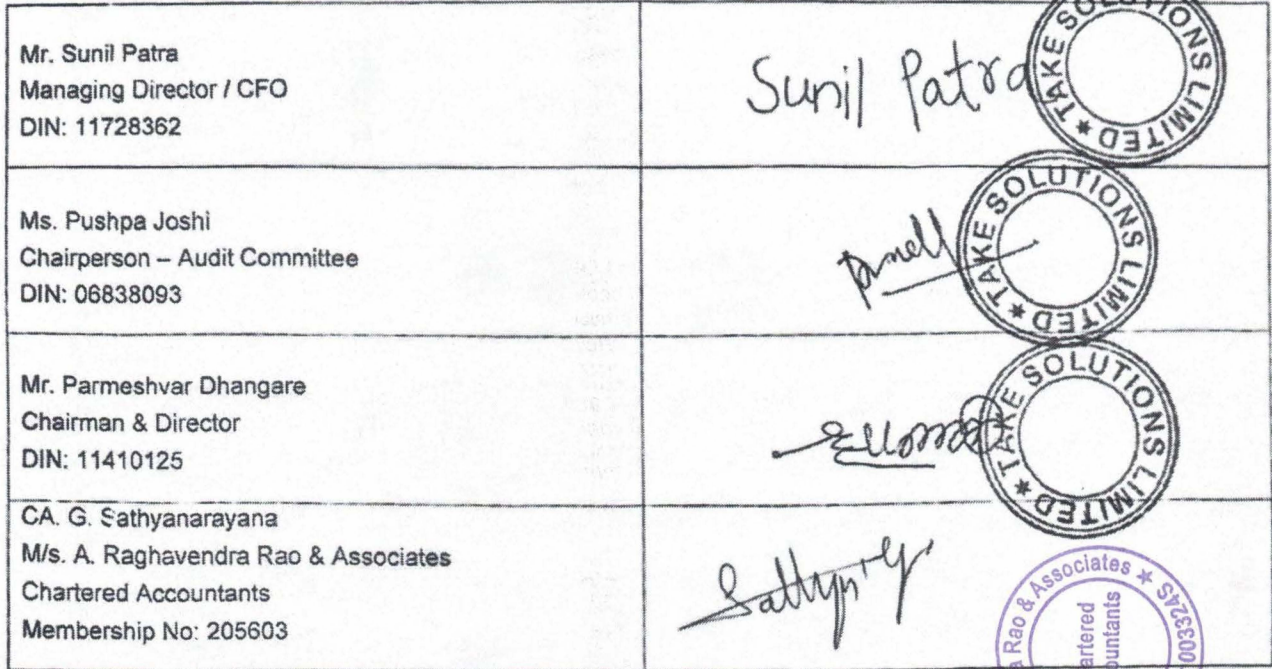 Mr. Sunil Patra
Managing Director / CFO
DIN: 11728362
Sunil Patra
TAKE SOLUTIONS LIMITED
Ms. Pushpa Joshi
Chairperson – Audit Committee
DIN: 06838093
TAKE SOLUTIONS LIMITED
Mr. Parmeshvar Dhangare
Chairman & Director
DIN: 11410125
TAKE SOLUTIONS LIMITED
CA. G. Sathyanarayana
M/s. A. Raghavendra Rao & Associates
Chartered Accountants
Membership No: 205603
a Rao & Associates
003324S
artered
ountants